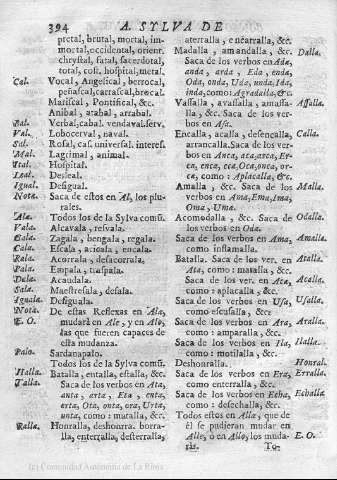 394 A. SYLVA DE
pretal, brutal, mortal, im-
mortal, occidental, orient.
chrystal, fatal, sacerdotal,
total, cost, hospital, metal.
Cal. Vocal, Angelical, berrocal,
peñascal, carrascal, brocal.
Mariscal, Pontifical, &c.
Anibal, atabal, arrabal.
Bal. Verbal, cabal. vendaval. serv.
Val. Loboserval, naval.
Sal. Rosal, casi universal. interes.
Mal. Lagrimal, animal.
Ital. Hospital.
Leal. Desleal.
Igual. Desigual.
Nota. Saca de estos en Al, los plu-
rales.
Ala. Todos los de la Sylva comũ.
Vala. Alcavala, resvala.
Gala. Zagala, bengala, regala.
Cala. Escala, acicala, encala.
Rala. Acorrala, desacorrala.
Pala. Empala, traspala.
Dala. Acaudala.
Sala. Maestresala, desala.
Iguala. Desiguala.
Nota. De estas Reflexas en Ala,
E. O. mudará en Ale, y en Alo,
las que fueren capaces de
esta mudanza.
Palo. Sardanapalo.
Todos los de la Sylva comũ.
Halla. Batalla, entalla, estalla, &c.
Talla. Saca de los verbos en Ata,
anta, arta, Eta, enta,
erta, Ota, onta, ora, Urta,
unta, como: maralla, &c.
Ralla. Honralla, deshonrra. borra-
lla, enterralla, desterralla,
aterralla, encarralla, &c.
Madalla, amandalla, &c. Dalla.
Saca de los verbos en Ada,
anda, arda, Eda, enda,
Oda, onda, Uda, unda, Ida,
inda, como: Agradalla, &c.
Vassalla, avassalla, amassa- Assalla.
lla, &c. Saca de los ver-
bos en Asa.
Encalla, acalla, desençalla, Calla.
arrancalla. Saca de los ver-
bos en Anca, aca, arca, Er-
ca, enca, eca, Oca, onca, or-
ca, como: Aplacalla, &c.
Amalla, &c. Saca de los Malla.
verbos en Ama, Ema, Ima,
Oma, Uma.
Acomodalla, &c. Saca de Odalla.
los verbos en Oda.
Saca de los verbos en Ama, Amalla.
como inflamalla.
Batalla. Saca de los ver. en Atalla.
Ata, como: matalla, &c.
Saca de los verbos en Aca, Acalla.
como: aplacalla, &c.
Saca de los verbos en Usa, Usalla.
como escusalla, &c.
Saca de los verbos en Ara, Aralla.
como: amparalla, &c.
Saca de los verbos en Ila, Ilalla.
como: motilalla, &c.
Deshonralla. Honral.
Saca de los verbos en Era, Erralla.
como enterralla, &c.
Saca de los verbos en Echa, Echalla
como: desechalla, &c.
Todos estos en Alla, que de
él se pudieran mudar en
Alle, ò en Allo, los muda- E. O.
rás. To-
(c) Comunidad Autónoma de La Rioja